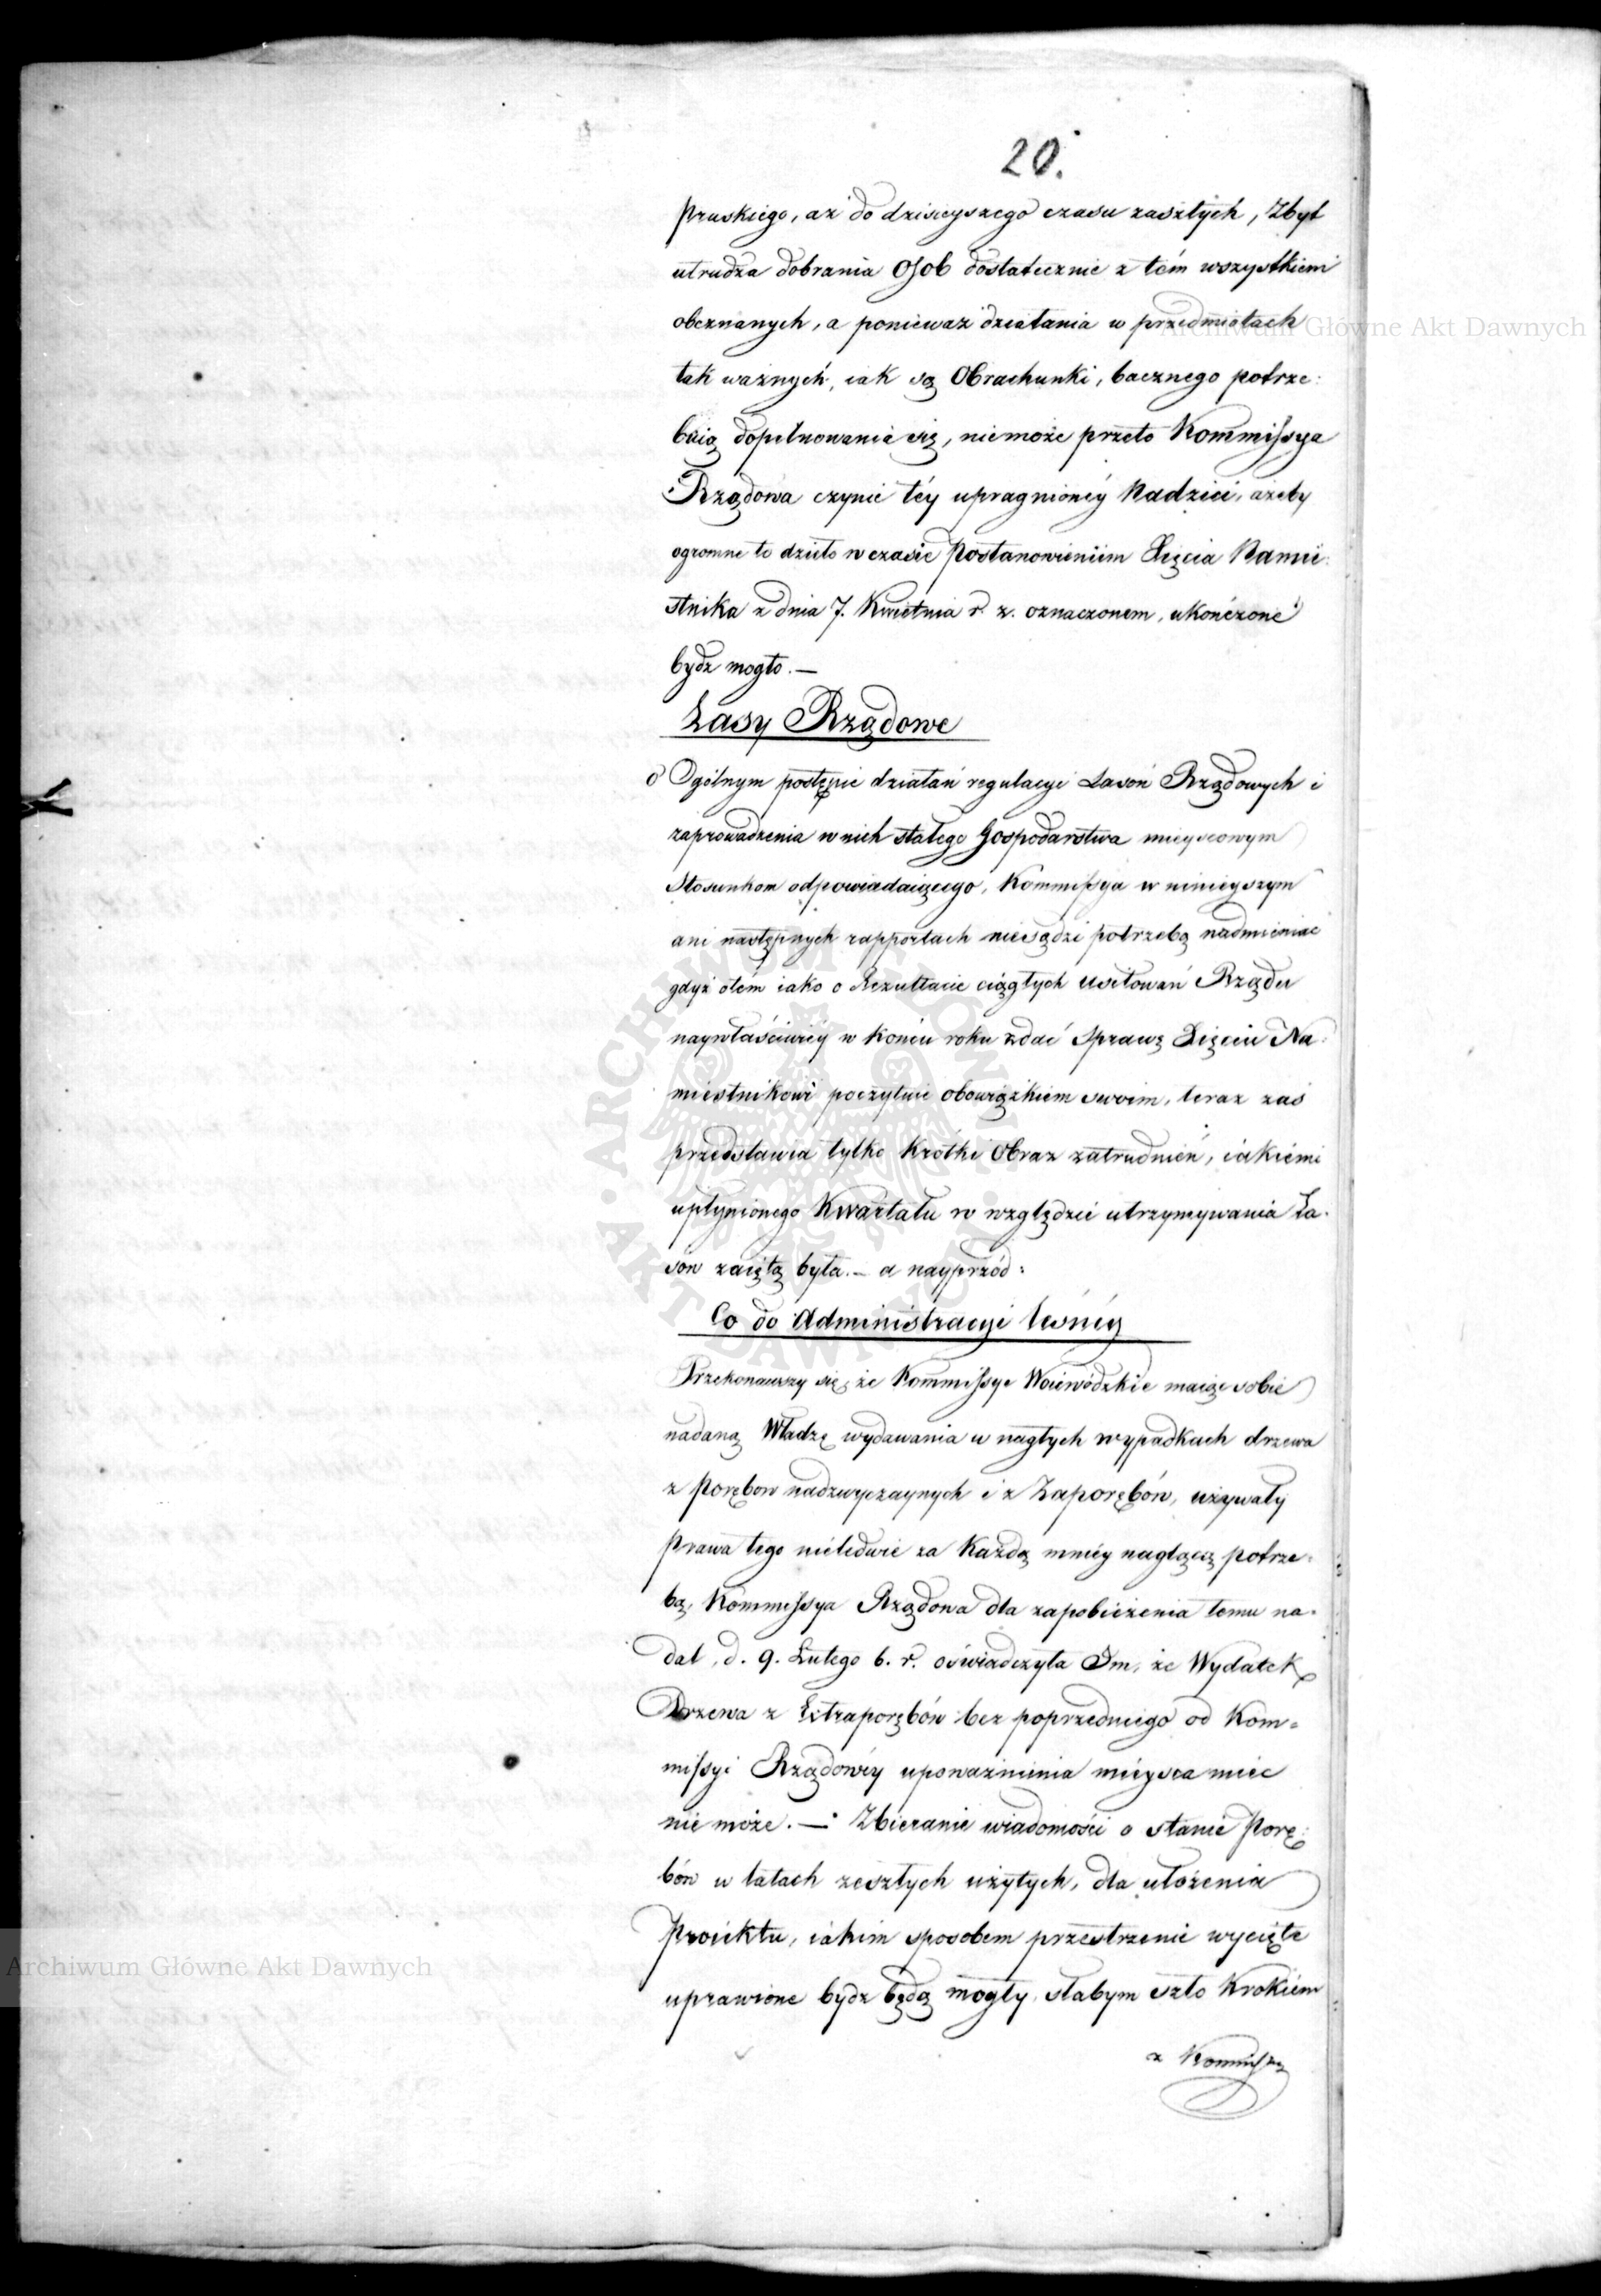 20.
Pruskiego, aż do dzisieyszego czasu zaszłych, zbyt
utrudza dobrania Osob dostatecznie z tém wszystkiem
obeznanych, a ponieważ działania w przedmiotach
tak ważnych, iak są Obrachunki, bacznego potrze:
buią dopełnowania się, niemoże przeto Kommissya
Rządowa czynić téy upragnionéy Nadziei, ażeby
ogromne to dzieło w czasie Postanowieniem Xięcia Namie:
stnika z dnia 7. Kwietnia r. z. oznaczonem, ukończone
bydz mogło. —
Lasy Rządowe
O Ogólnym postępie działań regulacyi Lasów Rządowych i
zaprowadzenia w nich stałego Gospodarstwa mieyscowym
Stosunkom odpowiadaiącego, Kommissya w ninieyszym
ani następnych rapportach niesądzi potrzebą nadmieniać
gdyż otém iako o Rezultacie ciągłych usiłowań Rządu
naywłaściwiéy w końcu roku zdać Sprawę Xięciu Na:
miestnikowi poczytuie obowiązkiem swoim, teraz zaś
przedstawia tylko Krótki Obraz zatrudnień, iakiémi
upłynionego Kwartału w względzie utrzymywania La:
sów zaiętą była. — a nayprzód:
Co do Administracyi leśnéy
Przekonawszy się, że Kommissye Woiewódzkie maiąc sobie
nadaną Władzę wydawania w nagłych wypadkach drzewa
z Porębow nadzwyczaynych i z Zaporębów, używały
Prawa tego nieledwie za Każdą mniéy naglącą potrze:
bą, Kommissya Rządowa dla zapobieżenia temu na:
dal, d. 9. Lutego b. r. oświadczyła Im, że Wydatek
Drzewa z Extraporębów bez poprzedniego od Kom=
missyi Rządowéy upoważnienia mieysca mieć
nie może. — Zbieranie wiadomości o stanie Porę:
bów w latach zeszłych użytych, dla ułożenia
Proiektu, iakim sposobem przestrzenie wycięte
uprawione bydz będą mogły, słabym szło Krokiem
z Kommissyi
Archiwum Główne Akt Dawnych
Archiwum Główne Akt Dawnych
ARCHIWUM GŁÓWNE AKT DAWNYCH